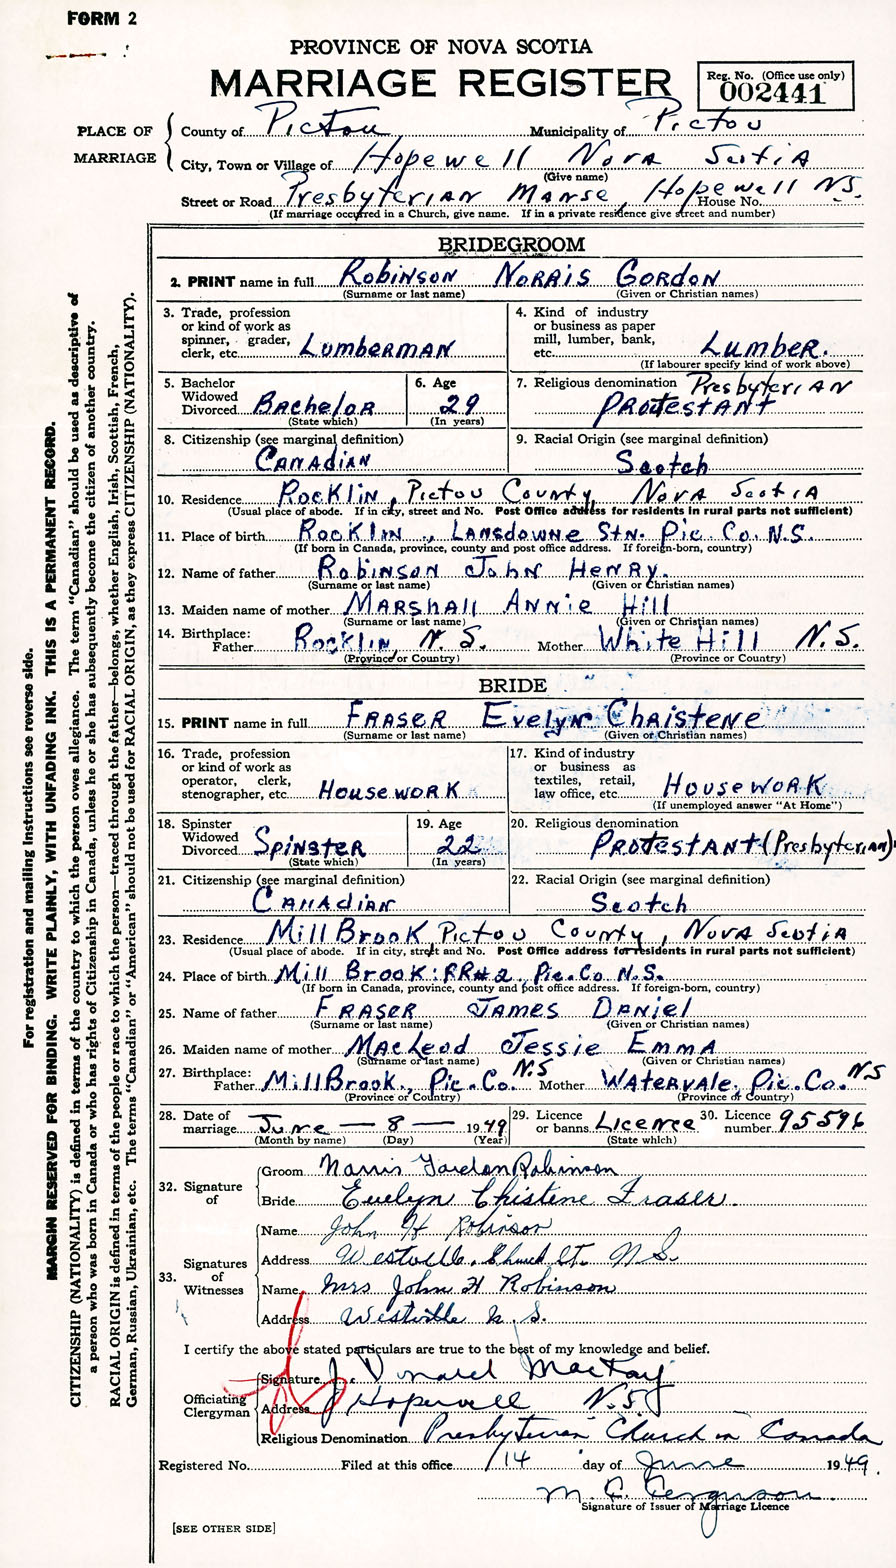 FORM 2
PROVINCE OF NOVA SCOTIA
MARRIAGE REGISTER
Reg. No. (Office use only)
002441
PLACE OF MARRIAGE
County of Pictou Municipality of Pictou
City, Town or Village of Hopewell Nova Scotia
(Give name)
Street or Road Presbyterian Manse, Hopewell N.S. House No.
(If marriage occurred in a Church, give name. If in a private residence give street and number)
BRIDEGROOM
2. PRINT name in full Robinson Norris Gordon
(Surname or last name) (Given or Christian names)
3. Trade, profession or kind of work as spinner, grader, clerk, etc. Lumberman
4. Kind of industry or business as paper mill, lumber, bank, etc. Lumber.
(If labourer specify kind of work above)
5. Bachelor Widowed Divorced Bachelor
(State which)
6. Age 29
(In years)
7. Religious denomination Presbyterian
Protestant
8. Citizenship (see marginal definition)
Canadian
9. Racial Origin (see marginal definition)
Scotch
10. Residence Rocklin, Pictou County Nova Scotia
(Usual place of abode. If in city, street and No. Post Office address for residents in rural parts not sufficient)
11. Place of birth Rocklin, Lansdowne Stn. Pic. Co. N.S.
(If born in Canada, province, county and post office address. If foreign-born, country)
12. Name of father Robinson John Henry.
(Surname or last name) (Given or Christian names)
13. Maiden name of mother Marshall Annie Hill
(Surname or last name) (Given or Christian names)
14. Birthplace:
Father Rocklin, N.S. Mother White Hill N.S.
(Province or Country) (Province or Country)
BRIDE
15. PRINT name in full Fraser Evelyn Christene
(Surname or last name) (Given or Christian names)
16. Trade, profession or kind of work as operator, clerk, stenographer, etc. Housework
17. Kind of industry or business as textiles, retail, law office, etc. Housework
(If unemployed answer "At Home")
18. Spinster Widowed Divorced Spinster
(State which)
19. Age 22
(In years)
20. Religious denomination
Protestant (Presbyterian)
21. Citizenship (see marginal definition)
Canadian
22. Racial Origin (see marginal definition)
Scotch
23. Residence Mill Brook, Pictou County, Nova Scotia
(Usual place of abode. If in city, street and No. Post Office address for residents in rural parts not sufficient)
24. Place of birth Mill Brook: RR#2 Pic. Co. N.S.
(If born in Canada, province, county and post office address. If foreign-born, country)
25. Name of father Fraser James Daniel
(Surname or last name) (Given or Christian names)
26. Maiden name of mother MacLeod Jessie Emma
(Surname or last name) (Given or Christian names)
27. Birthplace:
Father Mill Brook, Pic. Co. N.S Mother Watervale, Pic. Co. N.S
(Province or Country) (Province or Country)
28. Date of marriage June — 8 — 1949
(Month by name) (Day) (Year)
29. Licence or banns Licence
(State which)
30. Licence number 95596
32. Signature of
Groom Norris Gordon Robinson
Bride Evelyn Chistene Fraser.
33. Signatures of Witnesses
Name John H Robinson
Address Westville, Church St. N.S.
Name Mrs John H Robinson
Address Westville N.S.
I certify the above stated particulars are true to the best of my knowledge and belief.
Officiating Clergyman
Signature J. Donald MacKay
Address Hopewell N.S.
Religious Denomination Presbyterian Church in Canada
Registered No. Filed at this office 14 day of June 1949.
M. C. Ferguson.
Signature of Issuer of Marriage Licence
[SEE OTHER SIDE]
For registration and mailing instructions see reverse side.
MARGIN RESERVED FOR BINDING. WRITE PLAINLY, WITH UNFADING INK. THIS IS A PERMANENT RECORD.
CITIZENSHIP (NATIONALITY) is defined in terms of the country to which the person owes allegiance. The term "Canadian" should be used as descriptive of
a person who was born in Canada or who has rights of Citizenship in Canada, unless he or she has subsequently become the citizen of another country.
RACIAL ORIGIN is defined in terms of the people or race to which the person—traced through the father—belongs, whether English, Irish, Scottish, French,
German, Russian, Ukrainian, etc. The terms "Canadian" or "American" should not be used for RACIAL ORIGIN, as they express CITIZENSHIP (NATIONALITY).